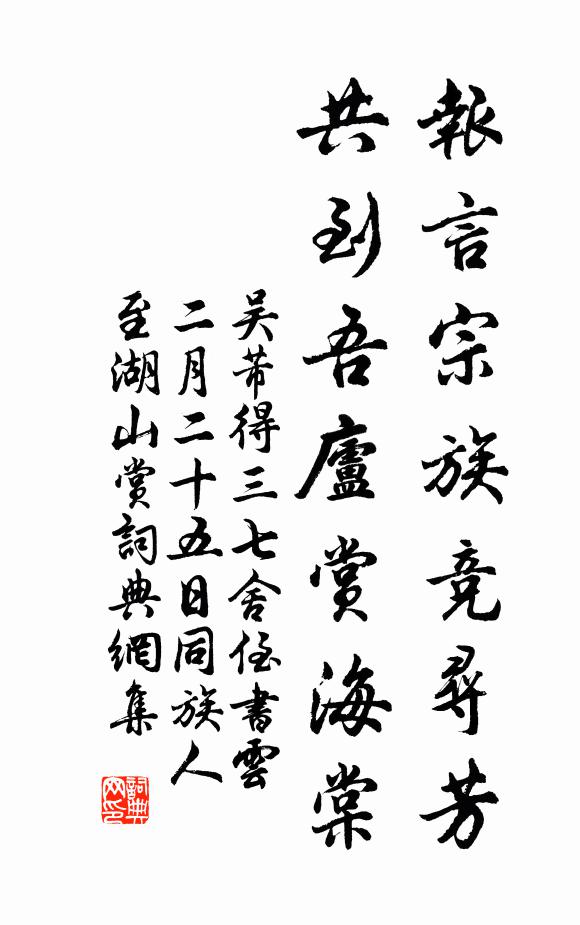 報言宗族竞尋芳
共到吾廬赏海棠
吴芾得三七舍侄書雲
二月二十五日同族人
至湖山赏詞典網集
詞典
网印